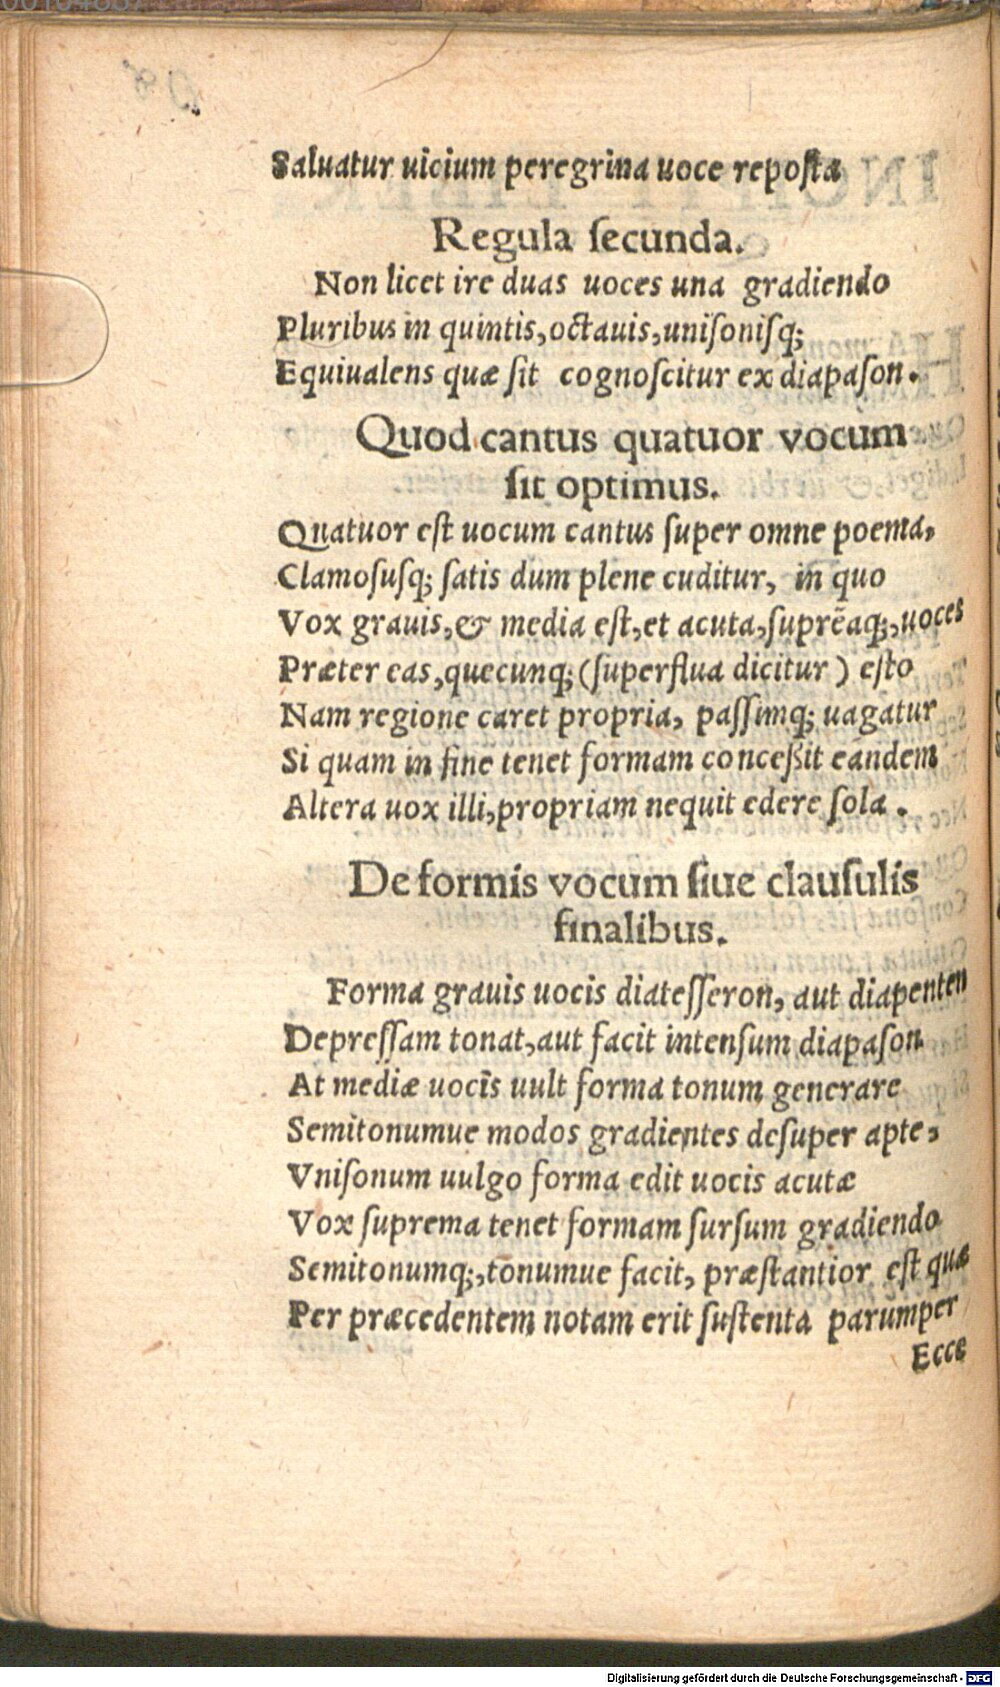 Saluatur uicium peregrina uoce reposta
Regula ſecunda.
Non licet ire duas uoces una gradiendo
Pluribus in quintis, octauis, uniſonisq;
Equiualens quæ ſit cognoſcitur ex diapaſon.
Quod cantus quatuor vocum
ſit optimus.
Quatuor eſt uocum cantus ſuper omne poema,
Clamoſuſq; ſatis dum plene cuditur, in quo
Vox grauis, & media eſt, et acuta, ſuprēaq;, uoces
Præter eas, quecunq; (ſuperflua dicitur) eſto
Nam regione caret propria, paſſimq; uagatur
Si quam in fine tenet formam conceßit eandem
Altera uox illi, propriam nequit edere ſola.
De formis vocum ſiue clauſulis
finalibus.
Forma grauis uocis diateſſeron, aut diapenten
Depreſſam tonat, aut facit intenſum diapaſon
At mediæ uocis uult forma tonum generare
Semitonumue modos gradientes deſuper apte,
Vniſonum uulgo forma edit uocis acutæ
Vox ſuprema tenet formam ſurſum gradiendo
Semitonumq;, tonumue facit, præſtantior eſt quæ
Per præcedentem notam erit ſuſtenta parumper
Ecce
Digitalisierung gefördert durch die Deutsche Forschungsgemeinschaft - DFG